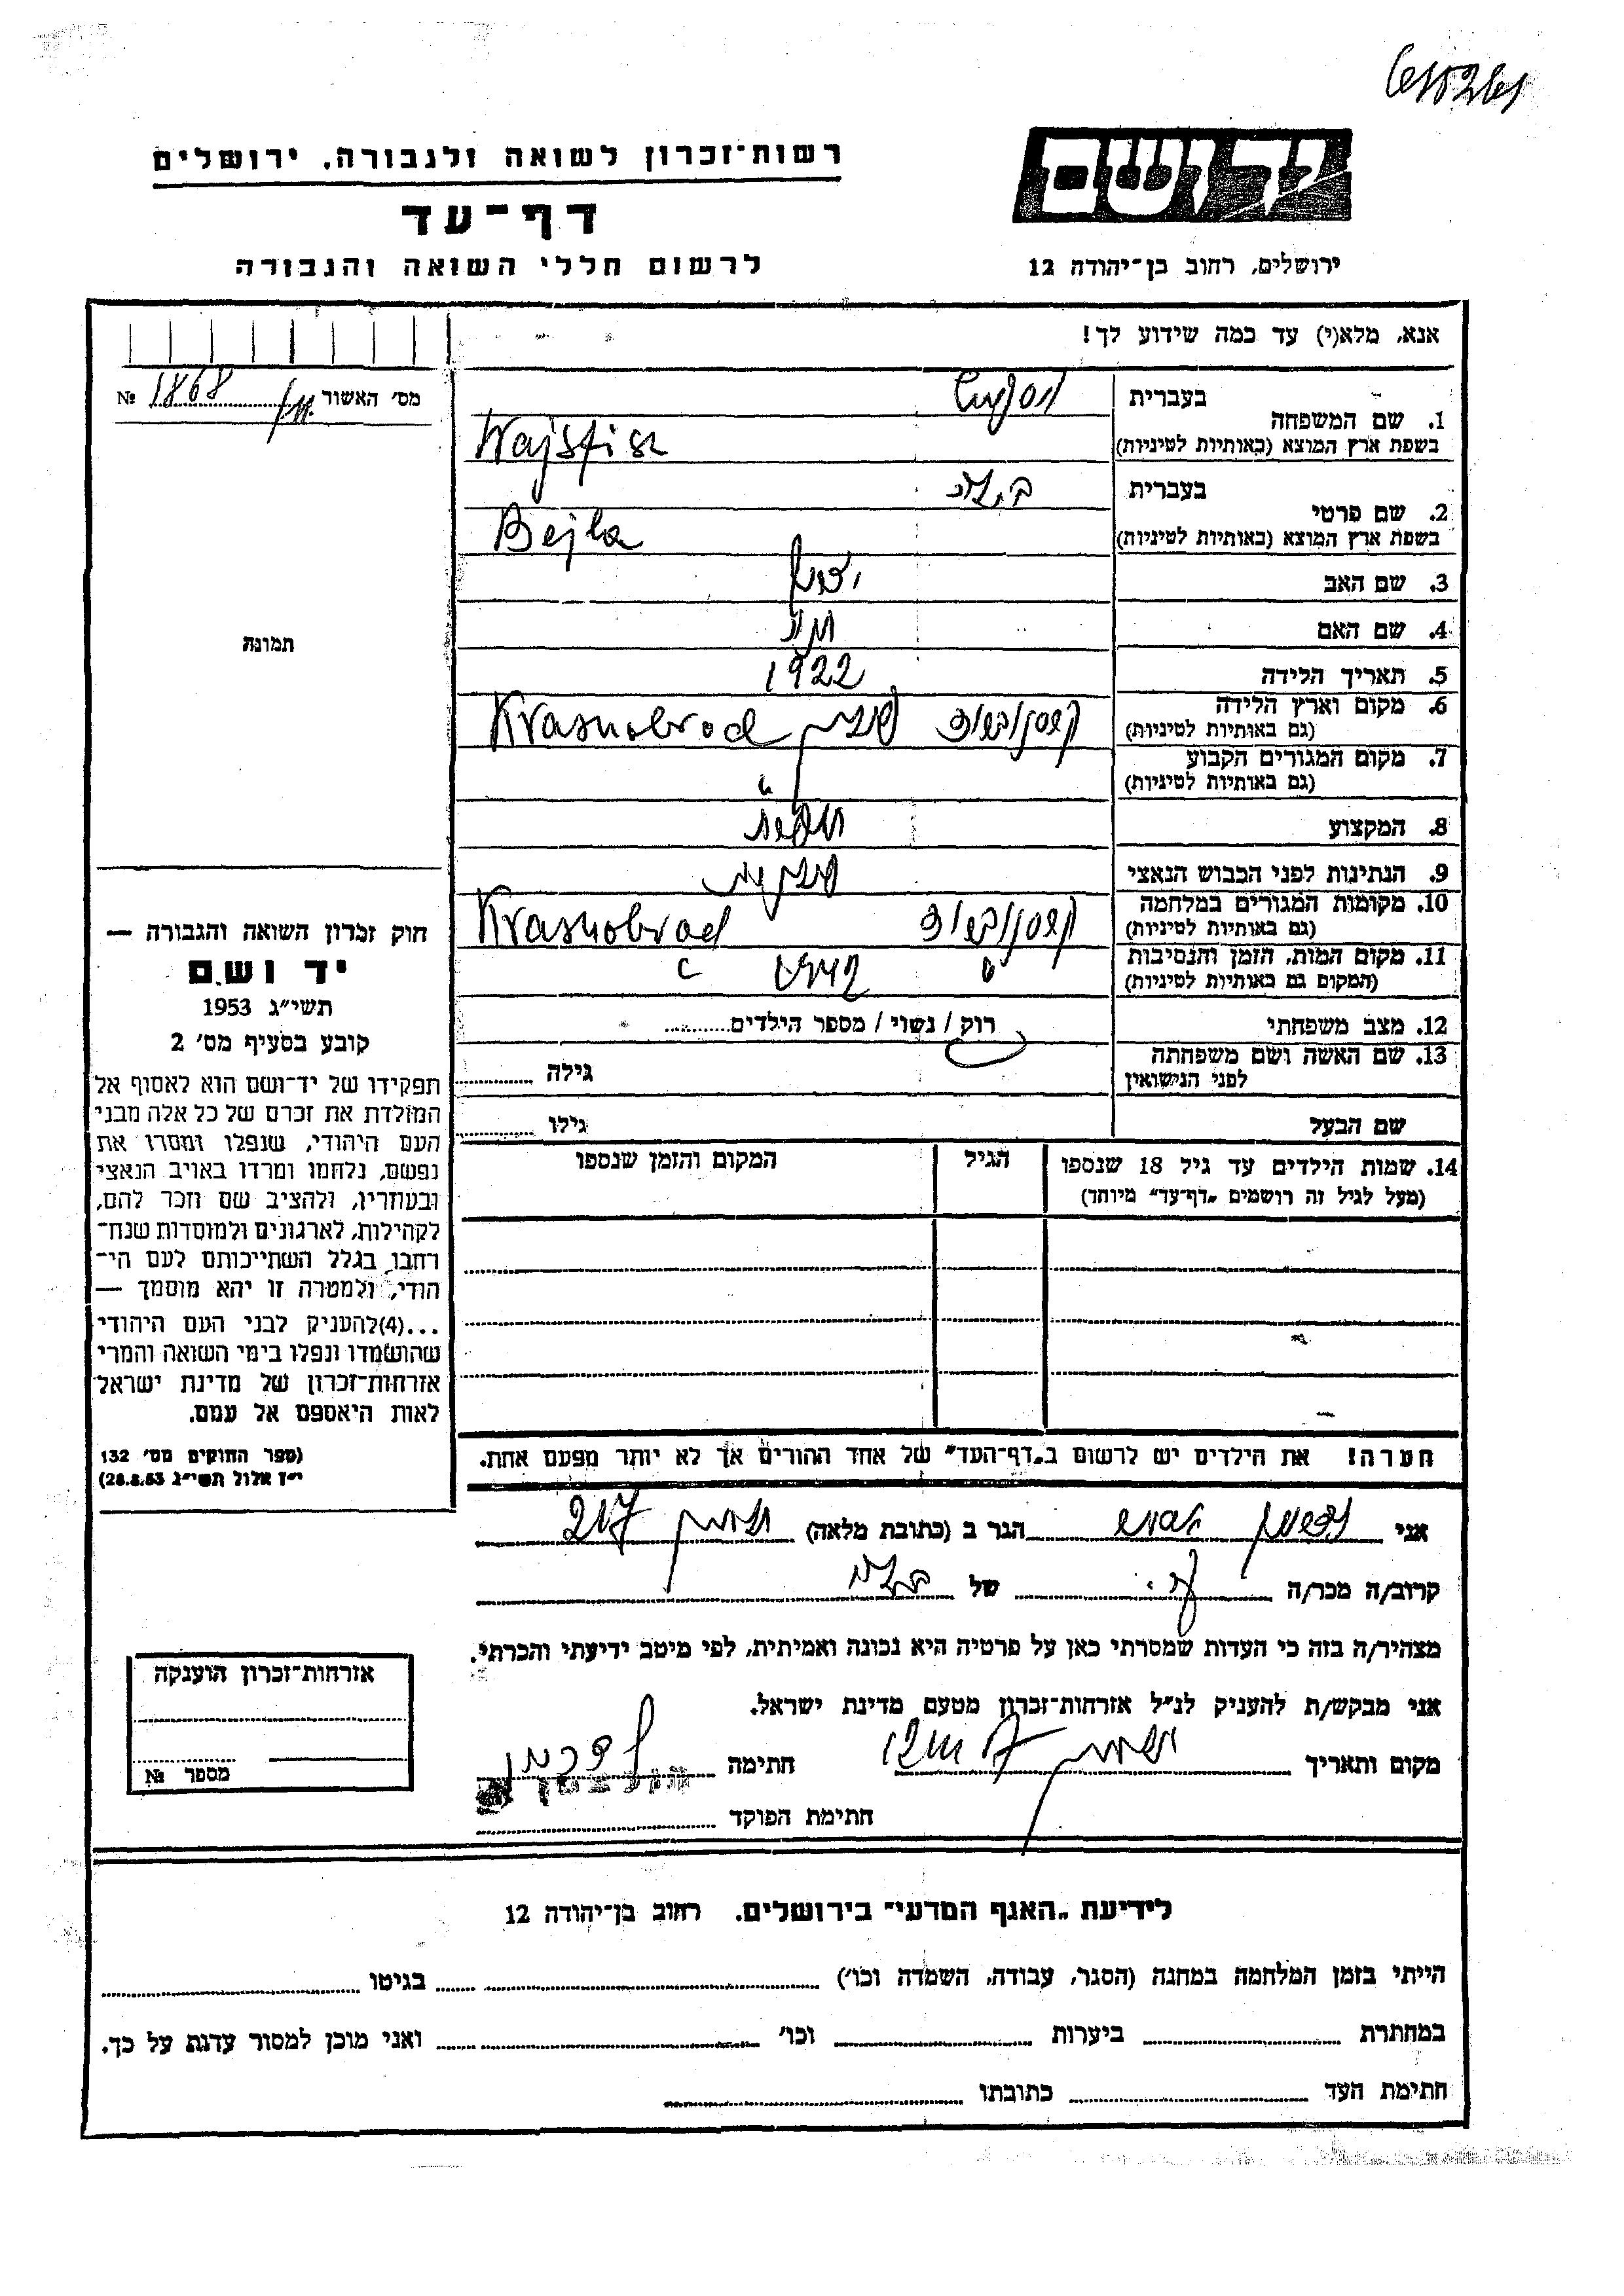 רשות־זכרון לשואה ולגבורה, ירושלים
יד ושם
דף־עד
לרשום חללי השואה והגבורה
ירושלים, רחוב בן־יהודה 12
אנא, מלא(י) עד כמה שידוע לך!
מס׳ האשור 1868 №
בעברית
1. שם המשפחה
בשפת ארץ המוצא (באותיות לטיניות) Wajsfisz
בעברית בילה
2. שם פרטי
בשפת ארץ המוצא (באותיות לטיניות) Bejla
3. שם האב יוסף
4. שם האם
תמונה
5. תאריך הלידה 1922
6. מקום וארץ הלידה קרסנוברוד פולין Krasnobrod
(גם באותיות לטיניות)
7. מקום המגורים הקבוע "
(גם באותיות לטיניות)
8. המקצוע
9. הנתינות לפני הכבוש הנאצי פולנית
10. מקומות המגורים במלחמה קרסנוברוד Krasnobrod
(גם באותיות לטיניות)
11. מקום המות, הזמן והנסיבות 1942
(המקום גם באותיות לטיניות)
12. מצב משפחתי רוק / נשוי / מספר הילדים
13. שם האשה ושם משפחתה
לפני הנישואין גילה
שם הבעל גילו
14. שמות הילדים עד גיל 18 שנספו הגיל המקום והזמן שנספו
(מעל לגיל זה רושמים „דף־עד" מיוחד)
הערה! את הילדים יש לרשום ב„דף־העד" של אחד ההורים אך לא יותר מפעם אחת.
חוק זכרון השואה והגבורה —
יד ושם
תשי״ג 1953
קובע בסעיף מס׳ 2
תפקידו של יד־ושם הוא לאסוף אל
המולדת את זכרם של כל אלה מבני
העם היהודי, שנפלו ומסרו את
נפשם, נלחמו ומרדו באויב הנאצי
ובעוזריו, ולהציב שם וזכר להם,
לקהילות, לארגונים ולמוסדות שנח־
רחבו בגלל השתייכותם לעם הי־
הודי, ולמטרה זו יהא מוסמך —
...(4)להעניק לבני העם היהודי
שהושמדו ונפלו בימי השואה והמרי
אזרחות־זכרון של מדינת ישראל
לאות היאספם אל עמם.
(ספר החוקים מס׳ 132
י״ז אלול תשי״ג 28.8.53)
אני הגר ב (כתובת מלאה)
קרוב/ה מכר/ה של
מצהיר/ה בזה כי העדות שמסרתי כאן על פרטיה היא נכונה ואמיתית, לפי מיטב ידיעתי והכרתי.
אני מבקש/ת להעניק לנ״ל אזרחות־זכרון מטעם מדינת ישראל.
מקום ותאריך חתימה
חתימת הפוקד
אזרחות־זכרון הוענקה
מספר №
לידיעת „האגף המדעי" בירושלים, רחוב בן־יהודה 12
הייתי בזמן המלחמה במחנה (הסגר, עבודה, השמדה וכו׳) בגיטו
במחתרת ביערות וכו׳ ואני מוכן למסור עדות על כך.
חתימת העד כתובתו